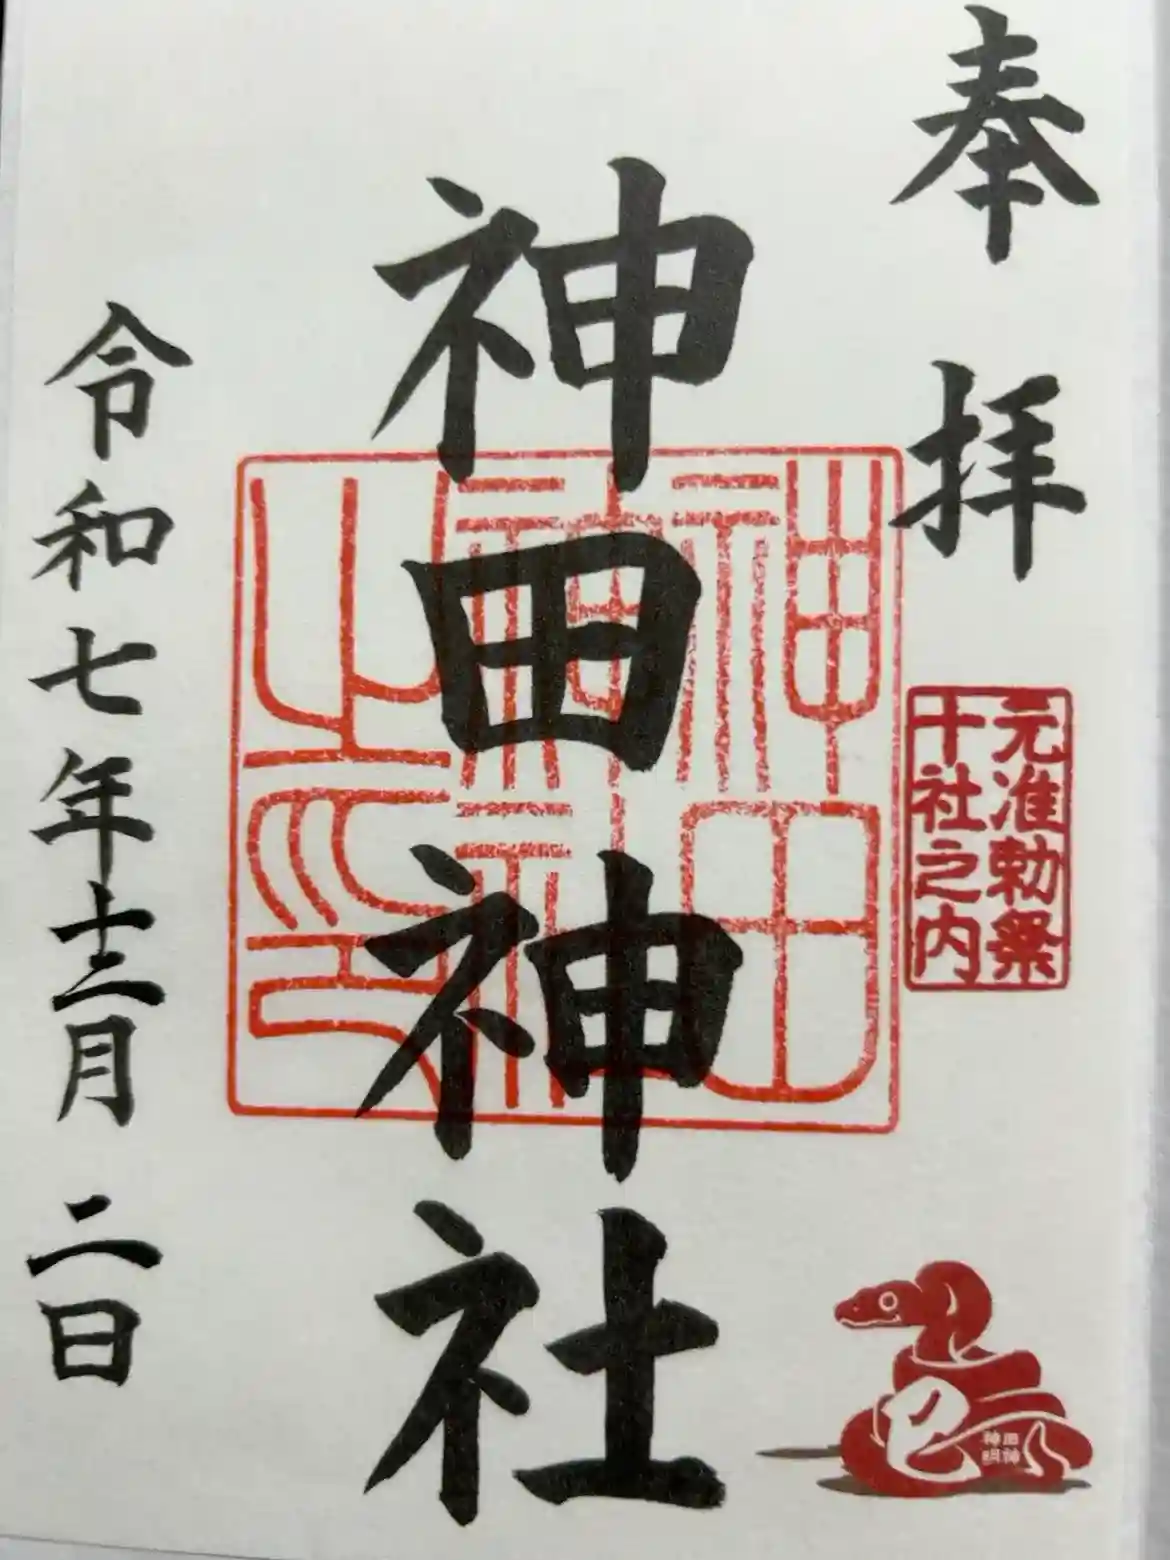 奉拝
元准勅祭
十社之内
神田神社
神田
神社
之印
令和七年十二月二日
巳
神田
明神